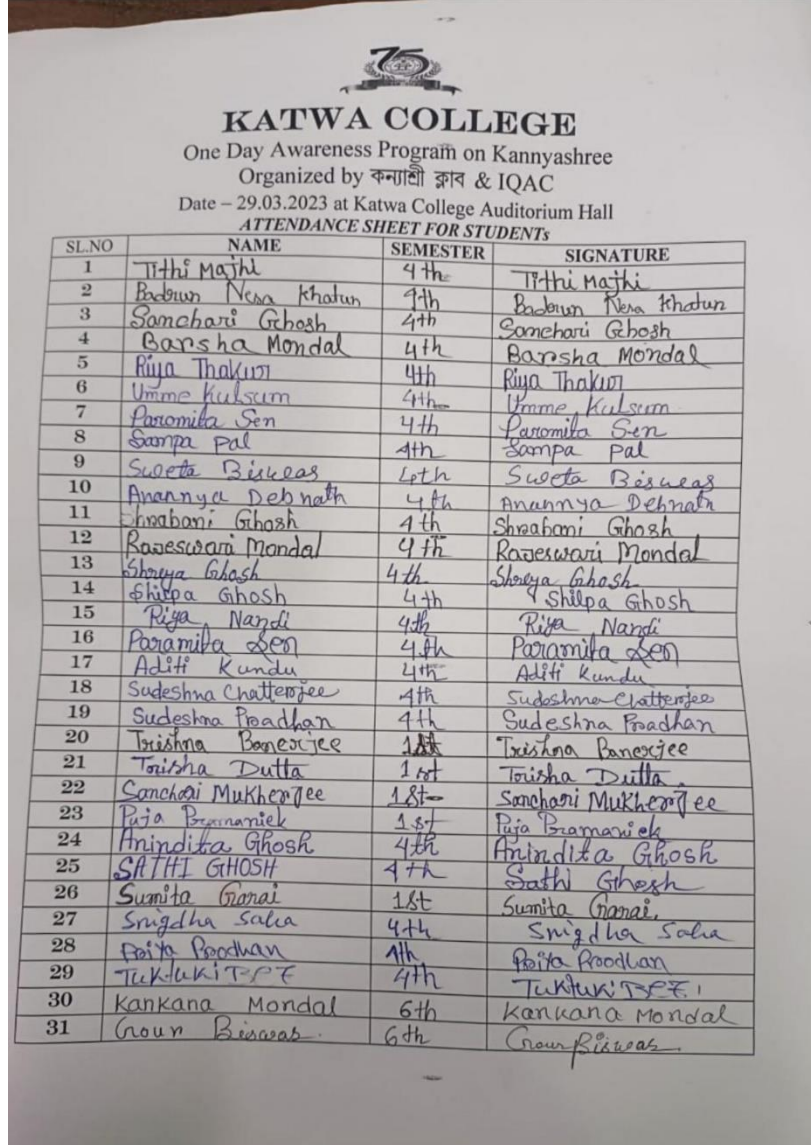 75
KATWA COLLEGE
One Day Awareness Program on Kannyashree
Organized by কন্যাশ্রী ক্লাব & IQAC
Date – 29.03.2023 at Katwa College Auditorium Hall
ATTENDANCE SHEET FOR STUDENTs
SL.NO NAME SEMESTER SIGNATURE
1 Tithi Majhi 4th Tithi Majhi
2 Badrun Nesa Khatun 4th Badrun Nesa Khatun
3 Sanchari Ghosh 4th Sanchari Ghosh
4 Barsha Mondal 4th Barsha Mondal
5 Riya Thakur 4th Riya Thakur
6 Umme Kulsum 4th Umme Kulsum
7 Paromita Sen 4th Paromita Sen
8 Sampa Pal 4th Sampa Pal
9 Sweta Biswas 4th Sweta Biswas
10 Anannya Debnath 4th Anannya Debnath
11 Shrabani Ghosh 4th Shrabani Ghosh
12 Rajeswari Mondal 4th Rajeswari Mondal
13 Shreya Ghosh 4th Shreya Ghosh
14 Shilpa Ghosh 4th Shilpa Ghosh
15 Riya Nandi 4th Riya Nandi
16 Paramita Sen 4th Paramita Sen
17 Aditi Kundu 4th Aditi Kundu
18 Sudeshna Chatterjee 4th Sudeshna Chatterjee
19 Sudeshna Pradhan 4th Sudeshna Pradhan
20 Trishna Banerjee 1st Trishna Banerjee
21 Trisha Dutta 1st Trisha Dutta.
22 Sanchari Mukherjee 1st Sanchari Mukherjee
23 Puja Pramaniek 1st Puja Pramaniek
24 Anindita Ghosh 4th Anindita Ghosh
25 SATHI GHOSH 4th Sathi Ghosh
26 Sumita Garai 1st Sumita Garai.
27 Snigdha Saha 4th Snigdha Saha
28 Priya Proodhan 4th Priya Proodhan
29 Tuktuki 4th Tuktuki
30 Kankana Mondal 6th Kankana Mondal
31 Gour Biswas. 6th Gour Biswas.